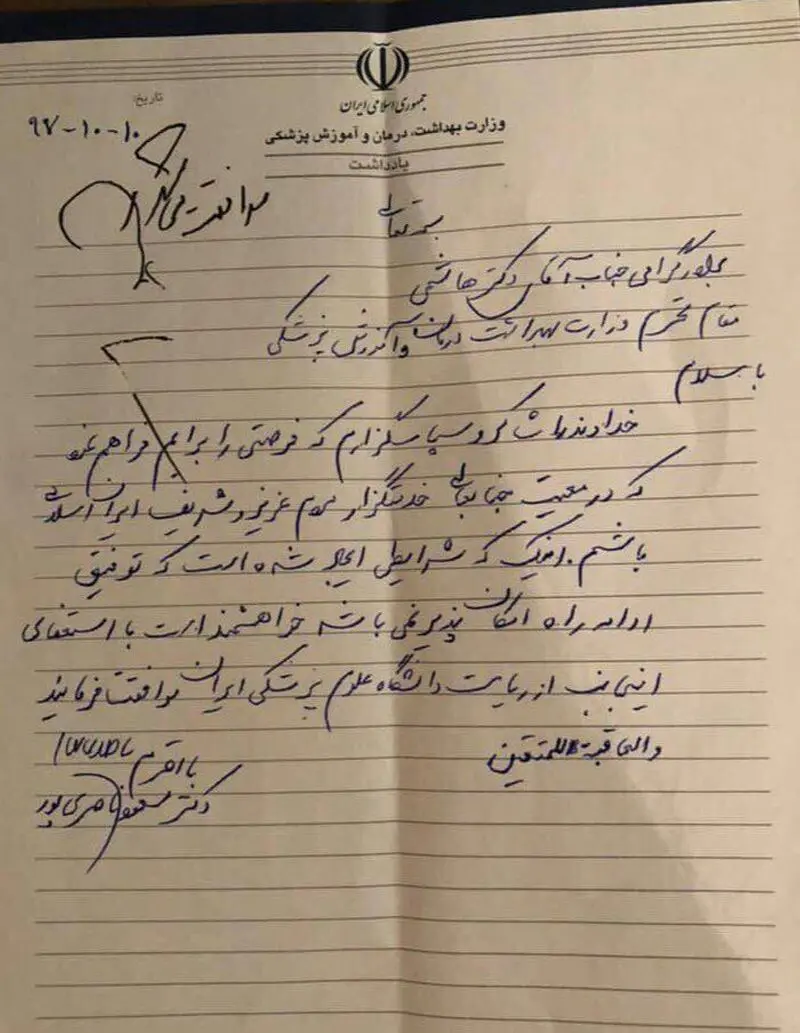 جمهوری اسلامی ایران
وزارت بهداشت، درمان و آموزش پزشکی
یادداشت
تاریخ:
۹۷-۱۰-۱۰
موافقت می شود
بسمه تعالی
برادر گرامی جناب آقای دکتر هاشمی
مقام محترم وزارت بهداشت درمان و آموزش پزشکی
با سلام
خداوند را شاکر و سپاسگزارم که فرصتی را برایم فراهم نمود
که در معیت جنابعالی خدمتگزار مردم عزیز و شریف ایران اسلامی
باشم. اینک که شرایطی ایجاد شده است که توفیق
ادامه راه امکان پذیر نمی باشد خواهشمند است با استعفای
اینجانب از ریاست دانشگاه علوم پزشکی ایران موافقت فرمایید
والعاقبة للمتقین
با احترام
دکتر مسعود ناصری پور